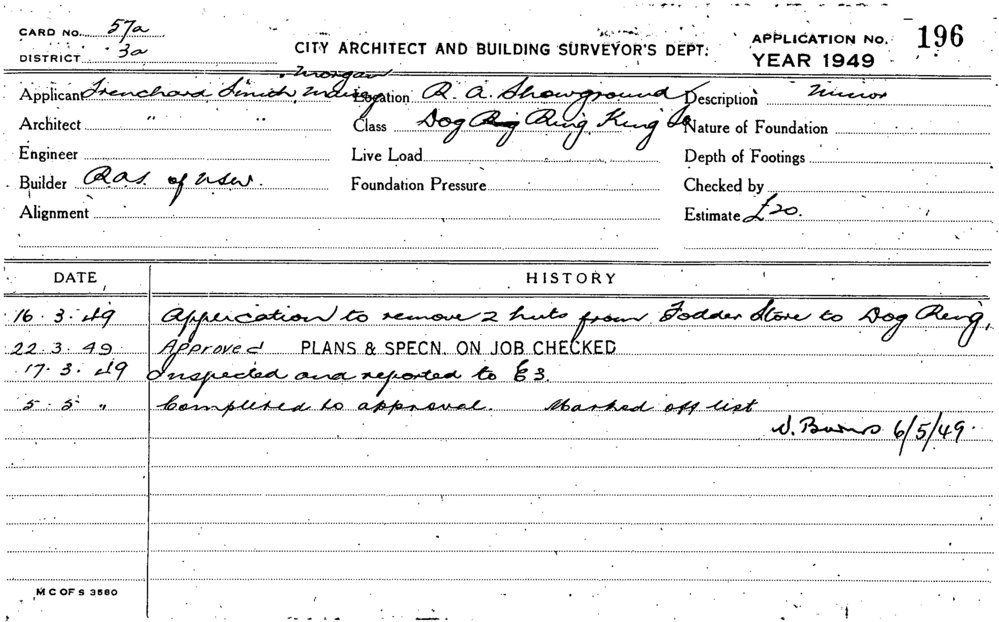 CARD No. 57a
DISTRICT 3a
CITY ARCHITECT AND BUILDING SURVEYOR'S DEPT:
APPLICATION No. 196
YEAR 1949
Morgan
Applicant Trenchard, Smith, Location R. A. Showground Description Minor
Architect " " Class Dog Ring Ring King Nature of Foundation
Engineer Live Load Depth of Footings
Builder RAS. of NSW. Foundation Pressure Checked by
Alignment Estimate £20.
DATE HISTORY
16.3.49 Application to remove 2 huts from Fodder Store to Dog Ring.
22.3.49 Approved PLANS & SPECN. ON JOB CHECKED
17.3.49 Inspected and reported to E3.
5.5 " Completed to approval. Marked off list
6/5/49.
M C OF S 3580